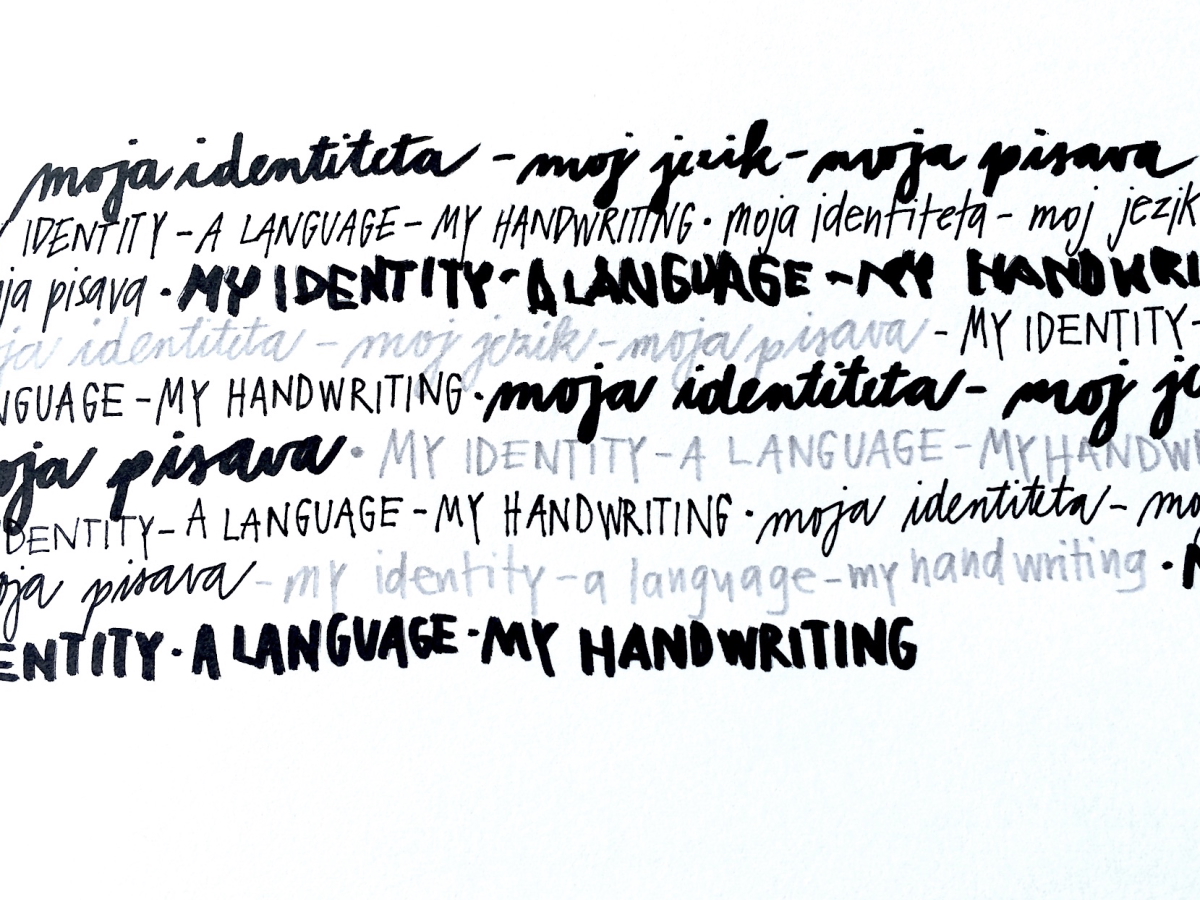 moja identiteta - moj jezik - moja pisava
IDENTITY - A LANGUAGE - MY HANDWRITING · moja identiteta - moj jezik
ja pisava · MY IDENTITY - A LANGUAGE - MY HANDWRI
ja identiteta - moj jezik - moja pisava - MY IDENTITY -
NGUAGE - MY HANDWRITING · moja identiteta - moj je
oja pisava · MY IDENTITY - A LANGUAGE - MY HANDW
DENTITY - A LANGUAGE - MY HANDWRITING · moja identiteta - mo
oja pisava - my identity - a language - my handwriting ·
ENTITY · A LANGUAGE - MY HANDWRITING